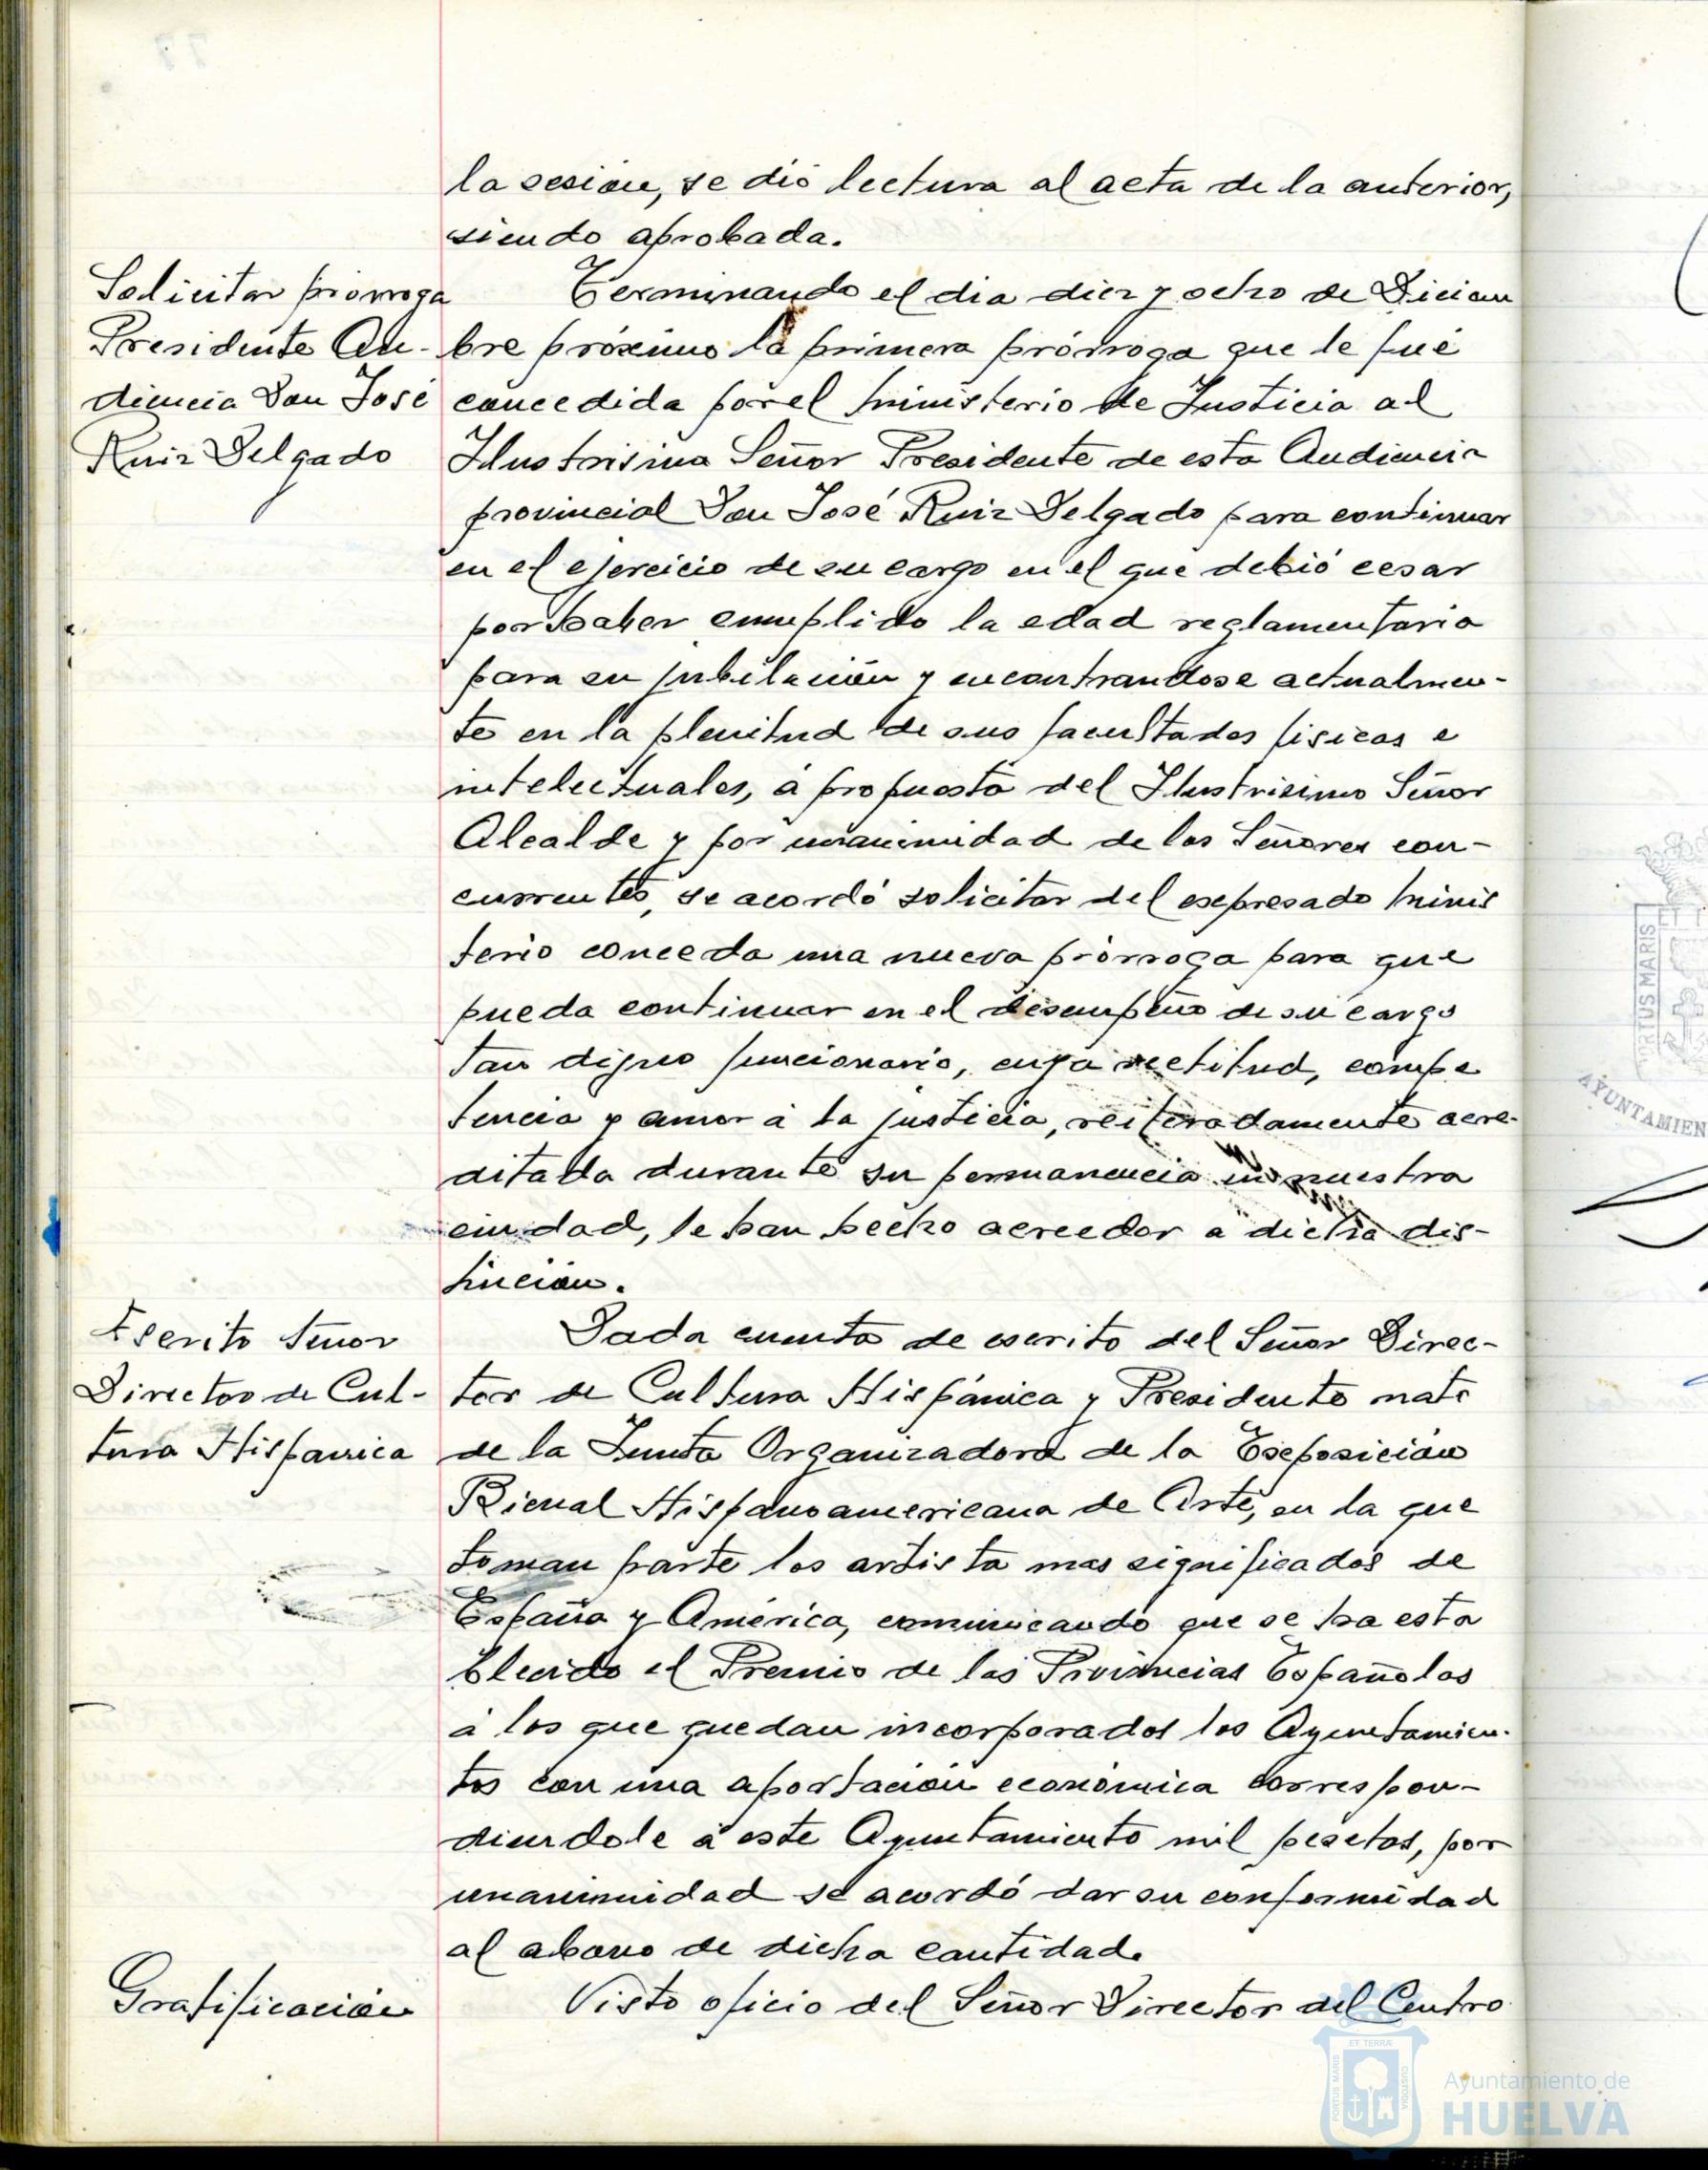 la sesión, se dió lectura al acta de la anterior,
siendo aprobada.
Solicitar prórroga
Presidente Au-
diencia Don José
Ruiz Delgado
Terminando el dia diez y ocho de Diciem
bre próximo la primera prórroga que le fué
concedida por el Ministerio de Justicia al
Ilustrisimo Señor Presidente de esta Audiencia
provincial Don José Ruiz Delgado para continuar
en el ejercicio de su cargo en el que debió cesar
por haber cumplido la edad reglamentaria
para su jubilación y encontrandose actualmen-
te en la plenitud de sus facultades fisicas e
intelectuales, á propuesta del Ilustrisimo Señor
Alcalde y por unanimidad de los Señores con-
currentes, se acordó solicitar del expresado Minis
terio conceda una nueva prórroga para que
pueda continuar en el desempeño de su cargo
tan digno funcionario, cuya rectitud, compe
tencia y amor á la justicia, reiteradamente acre-
ditada durante su permanencia en nuestra
ciudad, le han hecho acreedor a dicha dis-
tinción.
Escrito Señor
Director de Cul-
tura Hispanica
Dada cuenta de escrito del Señor Direc-
tor de Cultura Hispánica y Presidente nato
de la Junta Organizadora de la Exposición
Bienal Hispanoamericana de Arte, en la que
toman parte los artista mas significados de
España y América, comunicando que se ha esta
blecido el Premio de las Provincias Españolas
á los que quedan incorporados los Ayuntamien-
tos con una aportación económica correspon-
diendole á este Ayuntamiento mil pesetas, por
unanimidad se acordó dar su conformidad
al abono de dicha cantidad.
Gratificación
Visto oficio del Señor Director del Centro
PORTUS MARIS
ET T
AYUNTAMIEN
ET TERRÆ
PORTUS MARIS
CUSTODIA
Ayuntamiento de
HUELVA